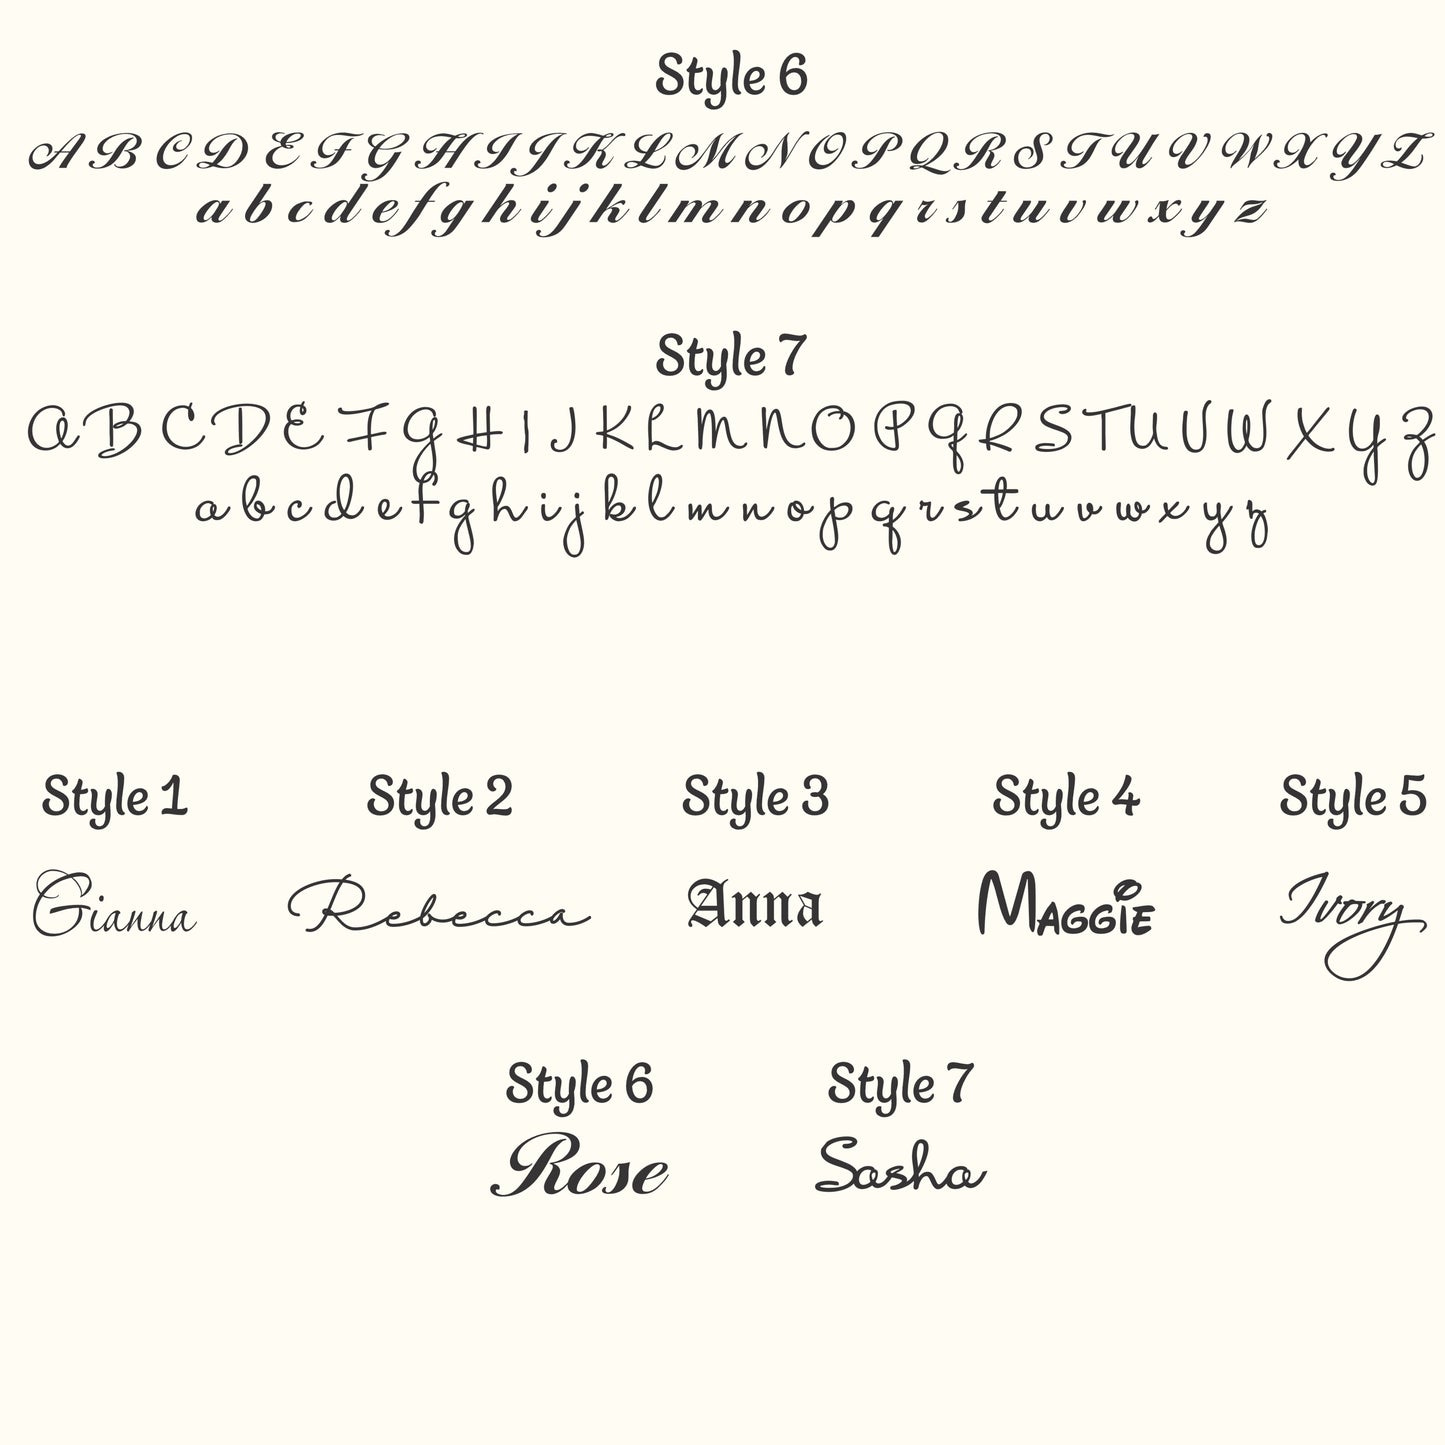 Style 6
A B C D E F G H I J K L M N O P Q R S T U V W X Y Z
a b c d e f g h i j k l m n o p q r s t u v w x y z
Style 7
A B C D E F G H I J K L M N O P Q R S T U V W X Y Z
a b c d e f g h i j k l m n o p q r s t u v w x y z
Style 1 Style 2 Style 3 Style 4 Style 5
Gianna Rebecca Anna Maggie Ivory
Style 6 Style 7
Rose Sasha